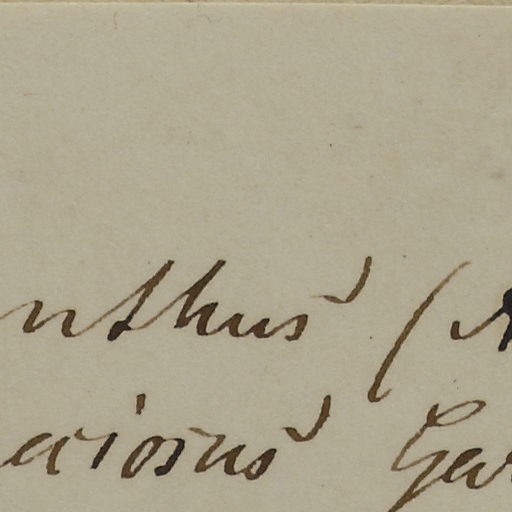 nthus (
aciosus Gar